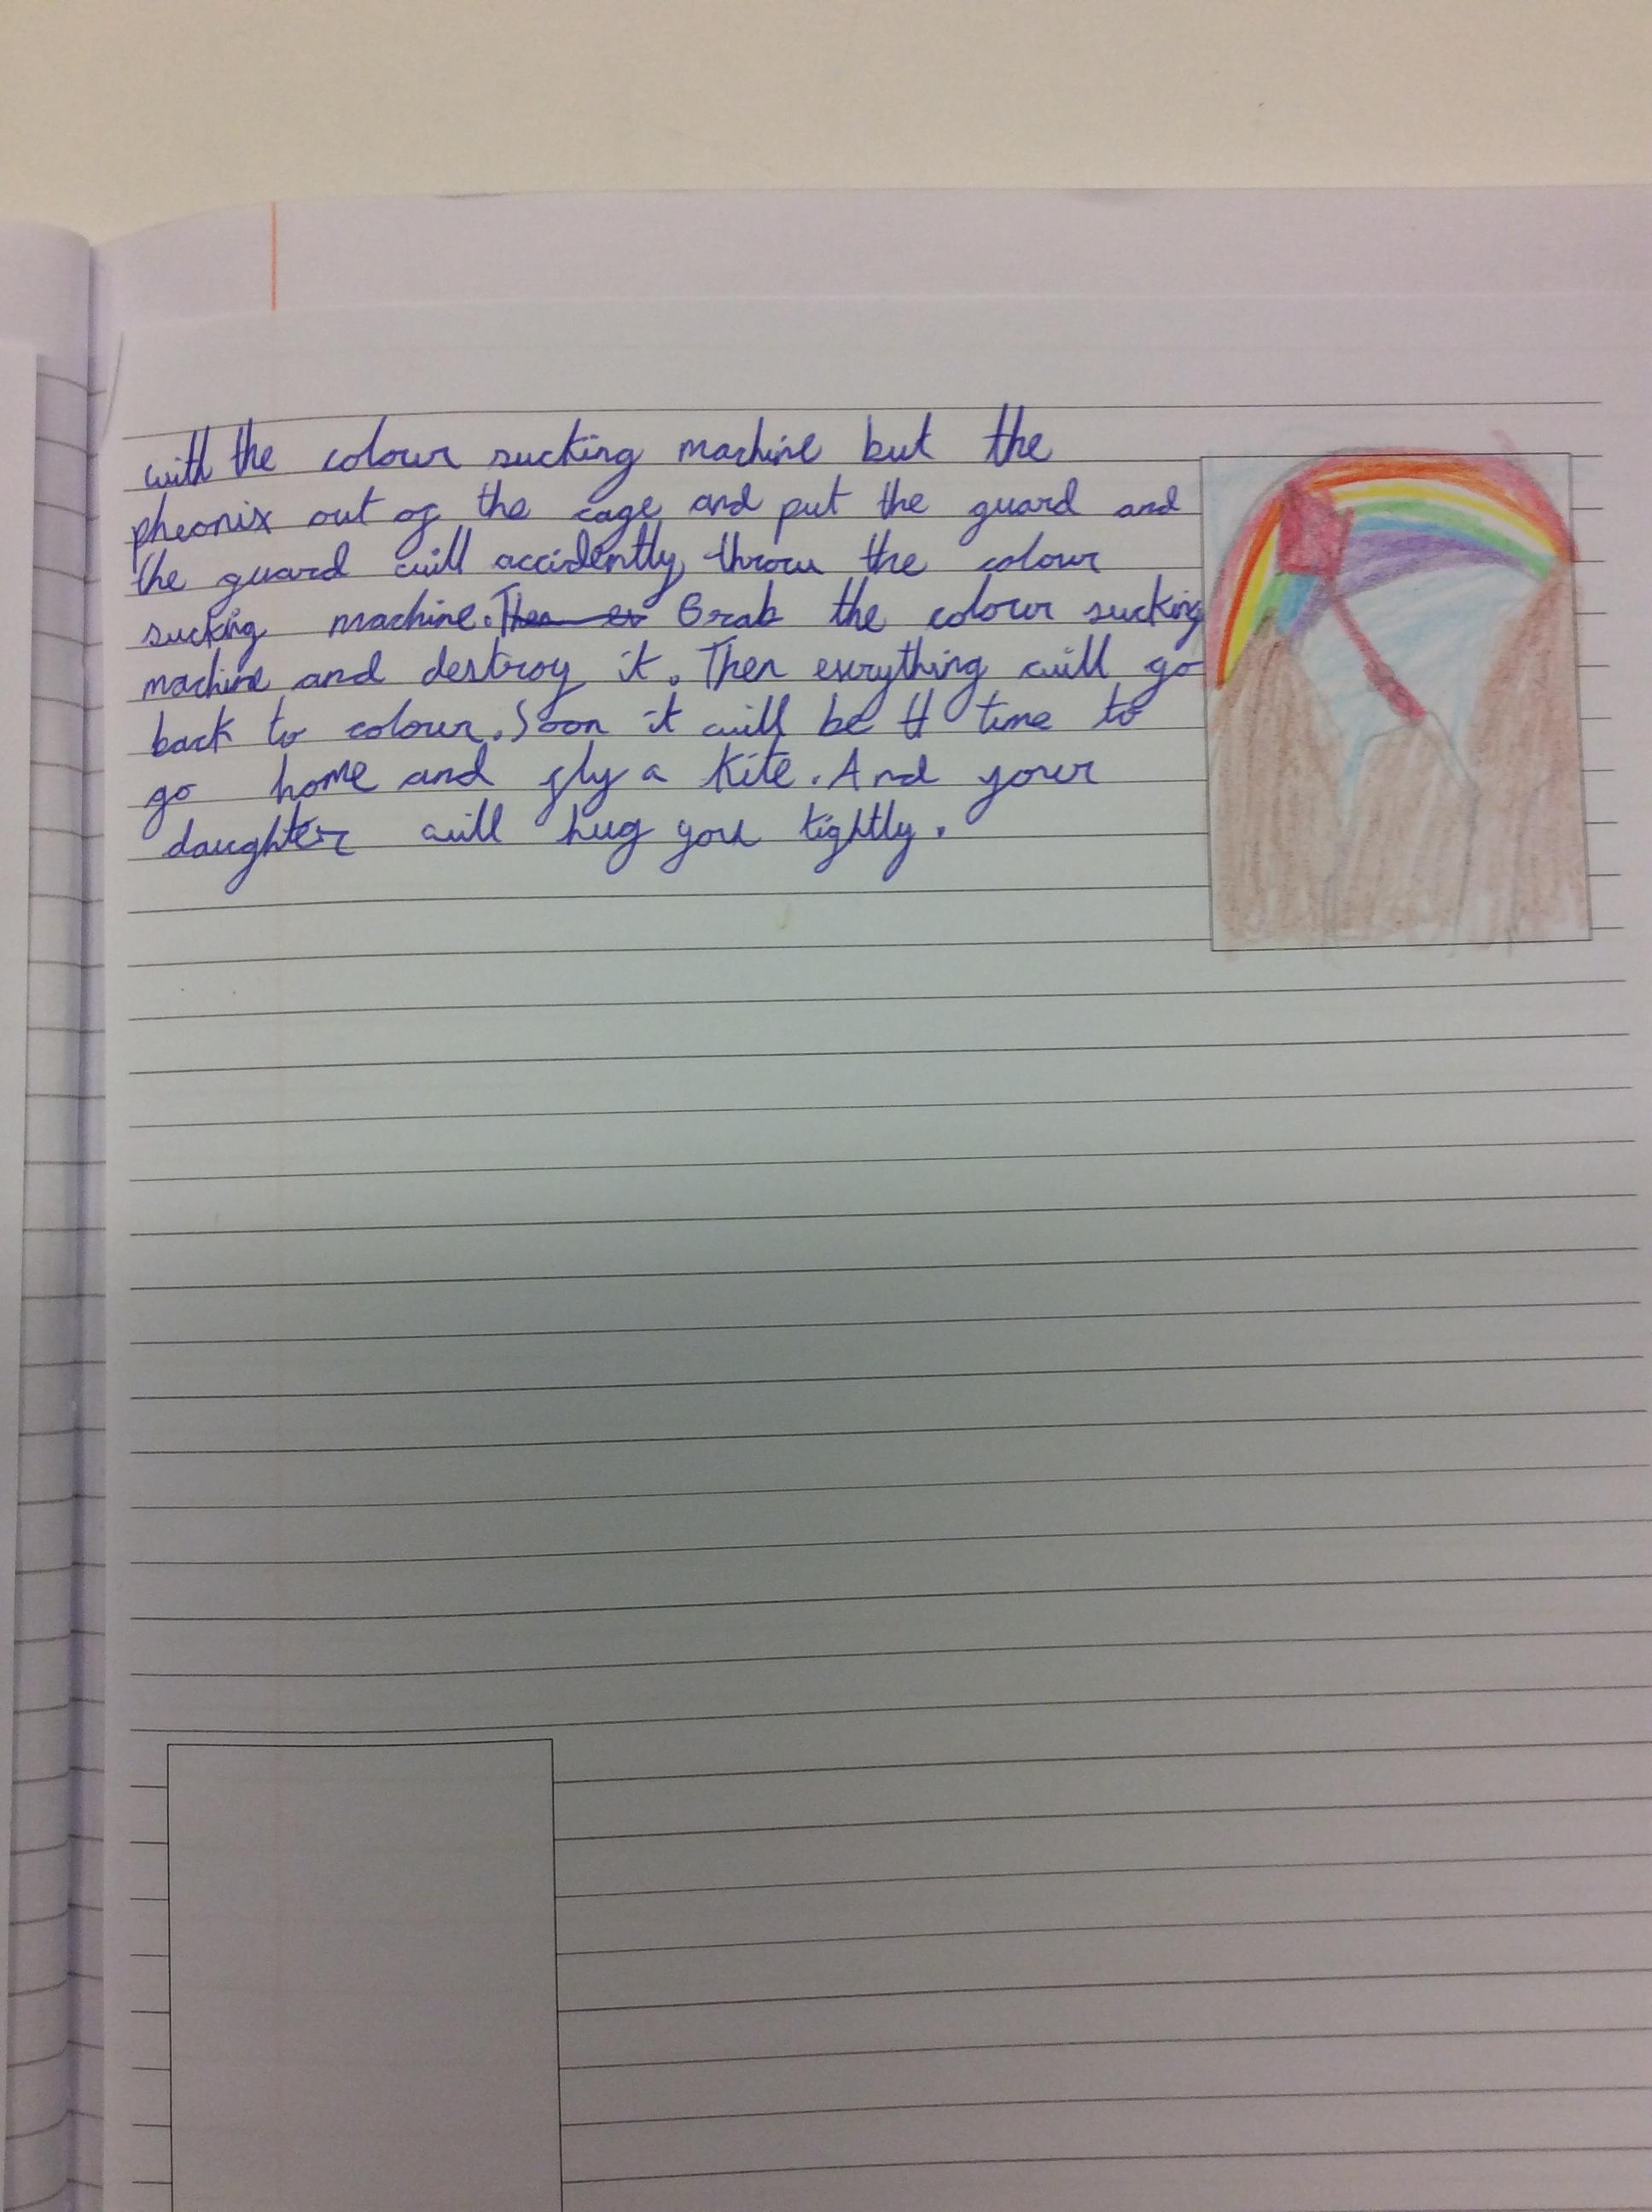 with the colour sucking machine but the
pheonix out of the cage and put the guard and
the guard will accidently throw the colour
sucking machine. Then Grab the colour sucking
machine and destroy it. Then everything will go
back to colour. Soon it will be time to
go home and fly a kite. And your
daughter will hug you tightly.